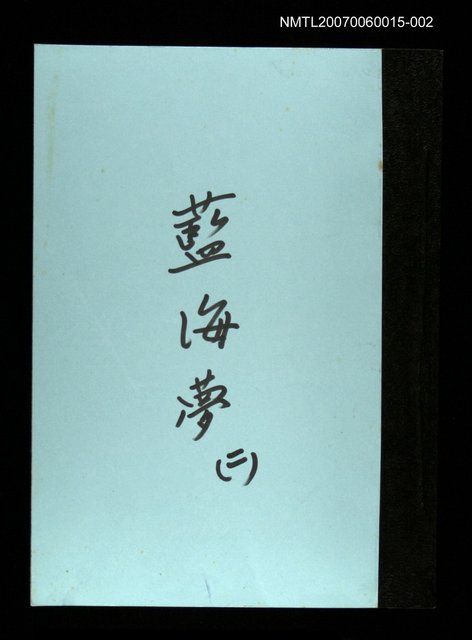 NMTL20070060015-002
藍海夢
(二)